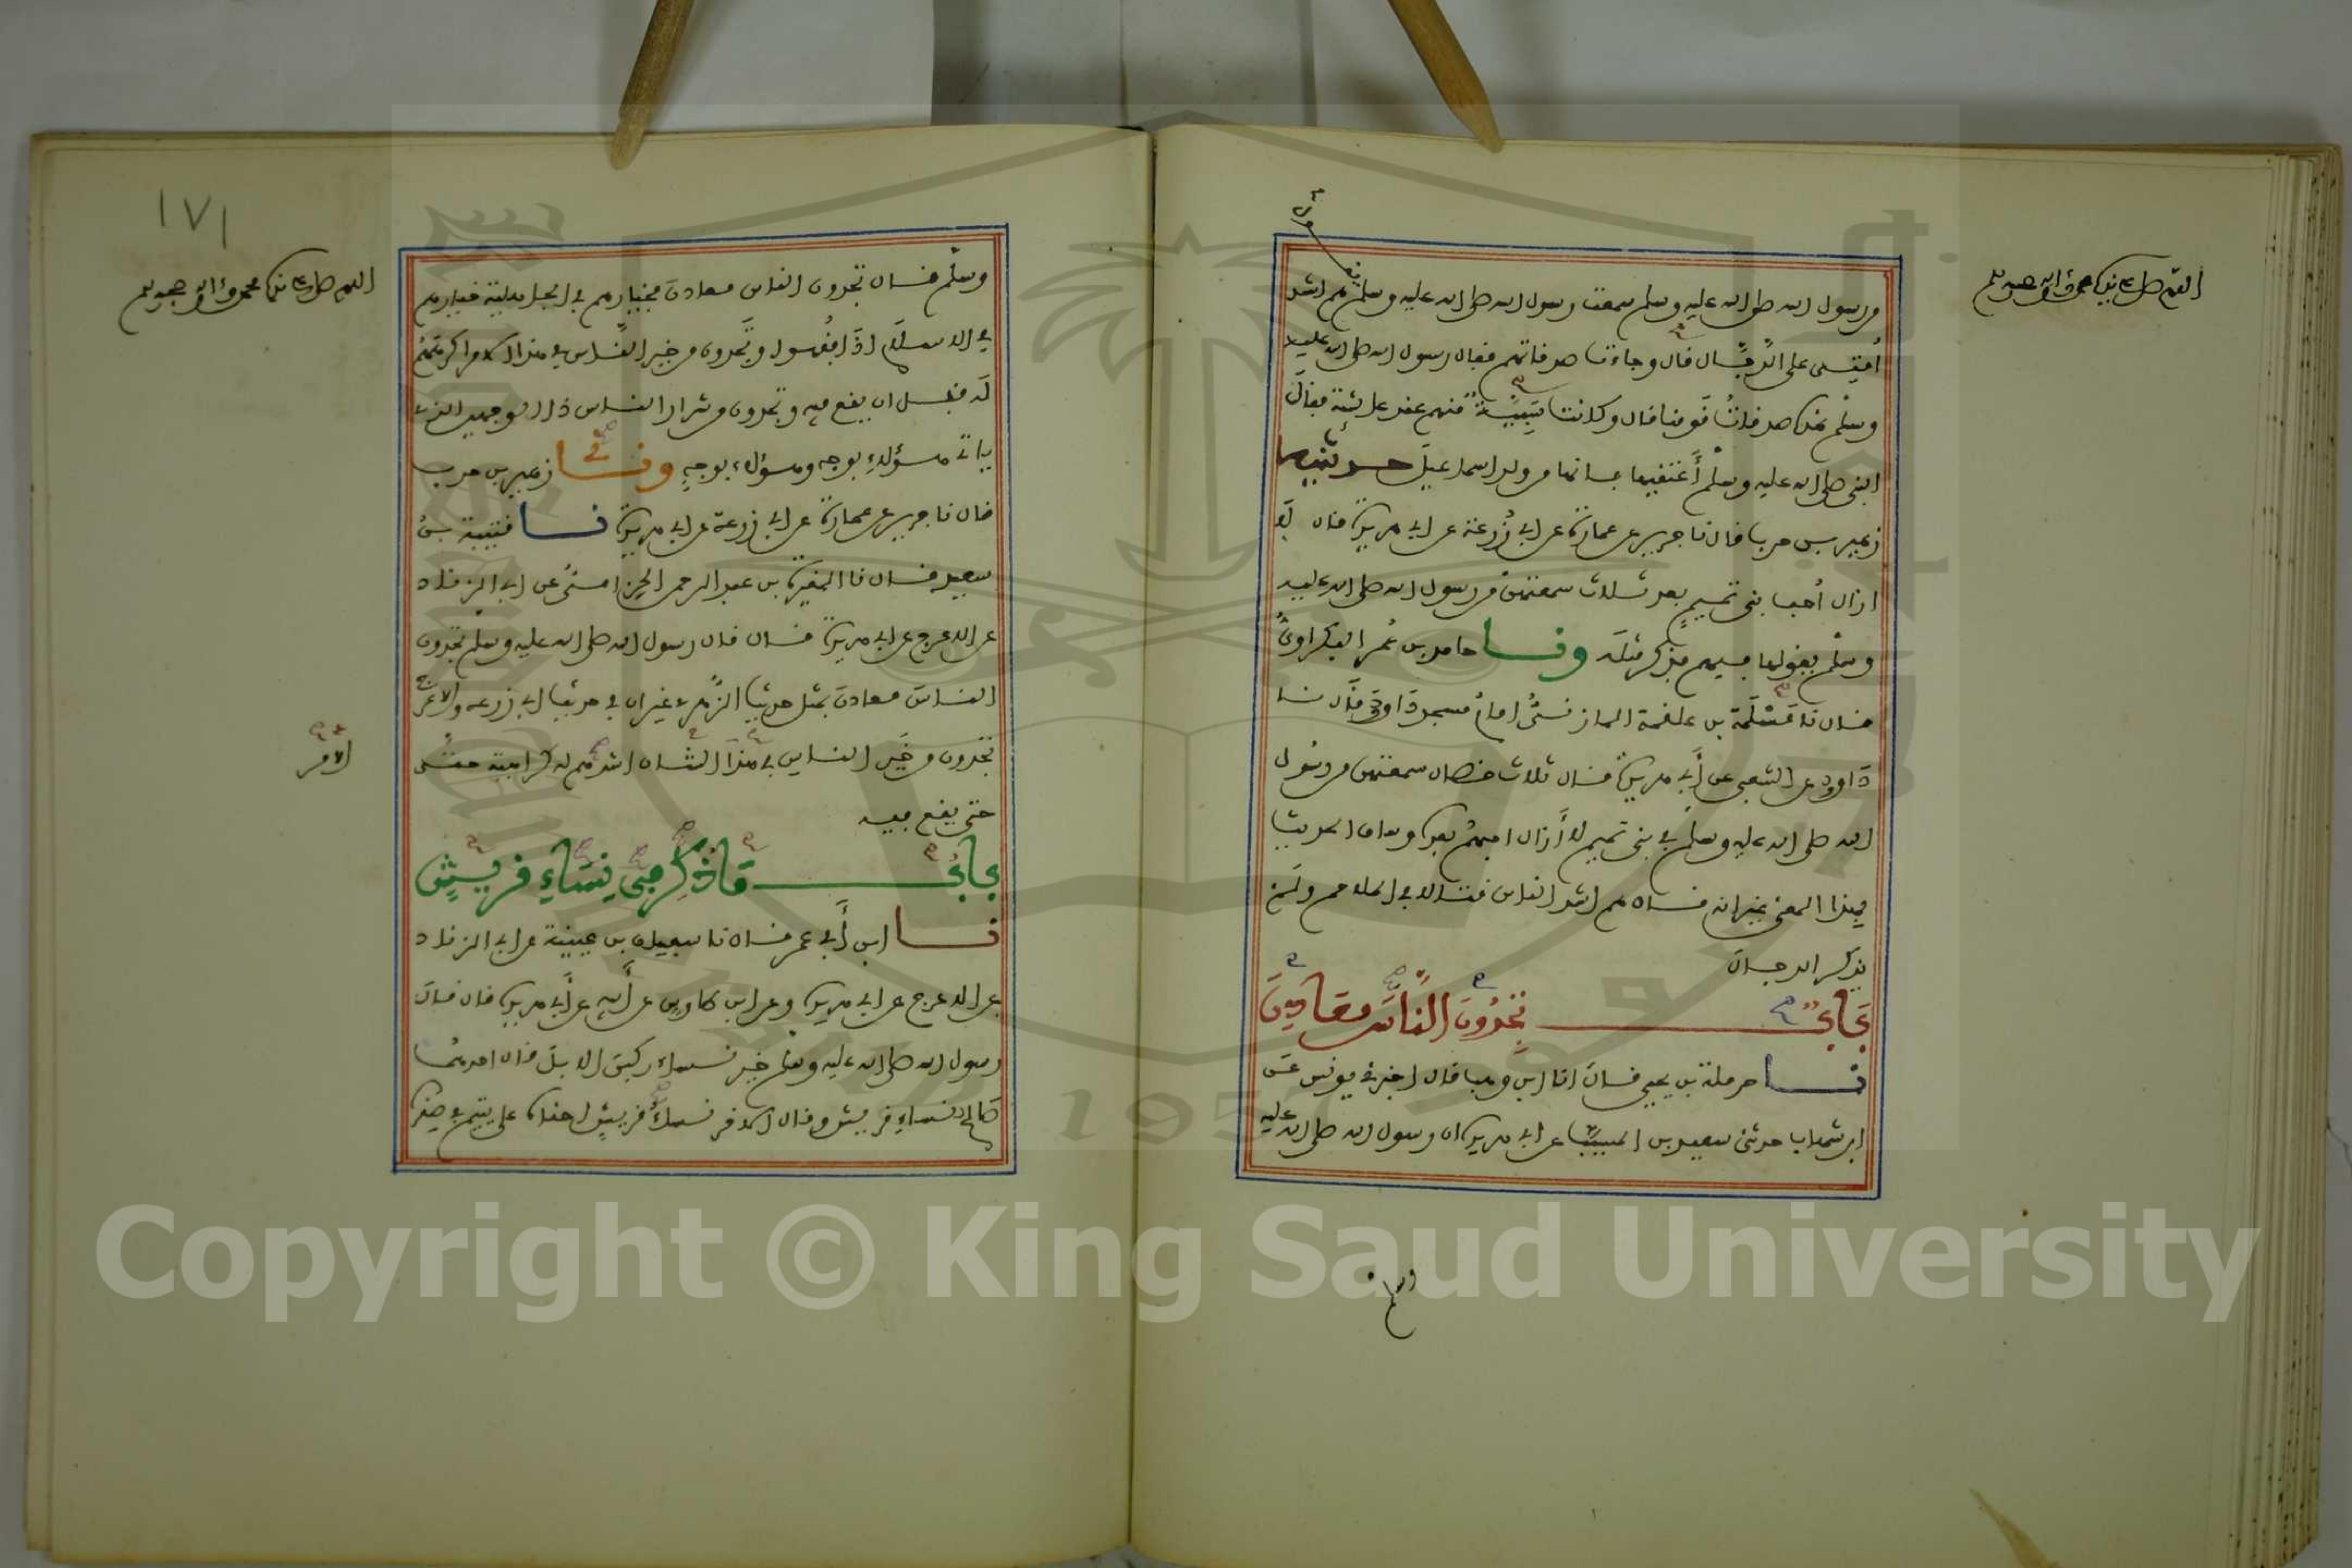 اللهم صل على نبينا محمد وآله وصحبه وسلم
من رسول الله صلى الله عليه وسلم سمعت رسول الله صلى الله عليه وسلم يقول هم اشد
أمتي على الدجال قال وجاءت صدقاتهم فقال رسول الله صلى الله عليه
وسلم هذه صدقات قومنا قال وكانت سبية منهم عند عائشة فقال
النبي صلى الله عليه وسلم أعتقيها فانها من ولد اسماعيل حدثنيه
زهير بن حرب قال نا جرير عن عمارة عن ابي زرعة عن ابي هريرة قال لا
ازال أحب بني تميم بعد ثلاث سمعتهن من رسول الله صلى الله عليه
وسلم يقولها فيهم فذكر مثله ونا حامد بن عمر البكراوي
قال نا مسلمة بن علقمة المازني امام مسجد داود قال نا
داود عن الشعبي عن أبي هريرة قال ثلاث خصال سمعتهن من رسول
الله صلى الله عليه وسلم في بني تميم لا أزال احبهم بعد وساق الحديث
بهذا المعنى غير انه قال هم اشد الناس قتالا في الملاحم ولم
يذكر الدجال
باب تجدون الناس معادن
نا حرملة بن يحيى قال انا ابن وهب قال اخبرني يونس عن
ابن شهاب حدثني سعيد بن المسيب عن ابي هريرة ان رسول الله صلى الله عليه
وسلم
١٧١
اللهم صل على نبينا محمد وآله وصحبه وسلم
وسلم قال تجدون الناس معادن فخيارهم في الجاهلية خيارهم
في الاسلام اذا فقهوا وتجدون من خير الناس في هذا الامر اكرههم
له قبل ان يقع فيه وتجدون من شرار الناس ذا الوجهين الذي
ياتي هؤلاء بوجه وهؤلاء بوجه ونا زهير بن حرب
قال نا جرير عن عمارة عن ابي زرعة عن ابي هريرة نا قتيبة بن
سعيد قال نا المغيرة بن عبد الرحمن الحزامي عن ابي الزناد
عن الاعرج عن ابي هريرة قال قال رسول الله صلى الله عليه وسلم تجدون
الناس معادن بمثل حديث الزهري غير ان في حديث ابي زرعة والاعرج
تجدون من خير الناس في هذا الشان اشدهم له كراهية حتى
الامر
حتى يقع فيه
باب ما ذكر في نساء قريش
نا ابن أبي عمر قال نا سفيان بن عيينة عن ابي الزناد
عن الاعرج عن ابي هريرة وعن ابن طاوس عن أبيه عن أبي هريرة قال قال
رسول الله صلى الله عليه وسلم خير نساء ركبن الابل قال احدهما
صالح نساء قريش وقال الاخر نساء قريش احناه على يتيم في صغره
Copyright © King Saud University
1957